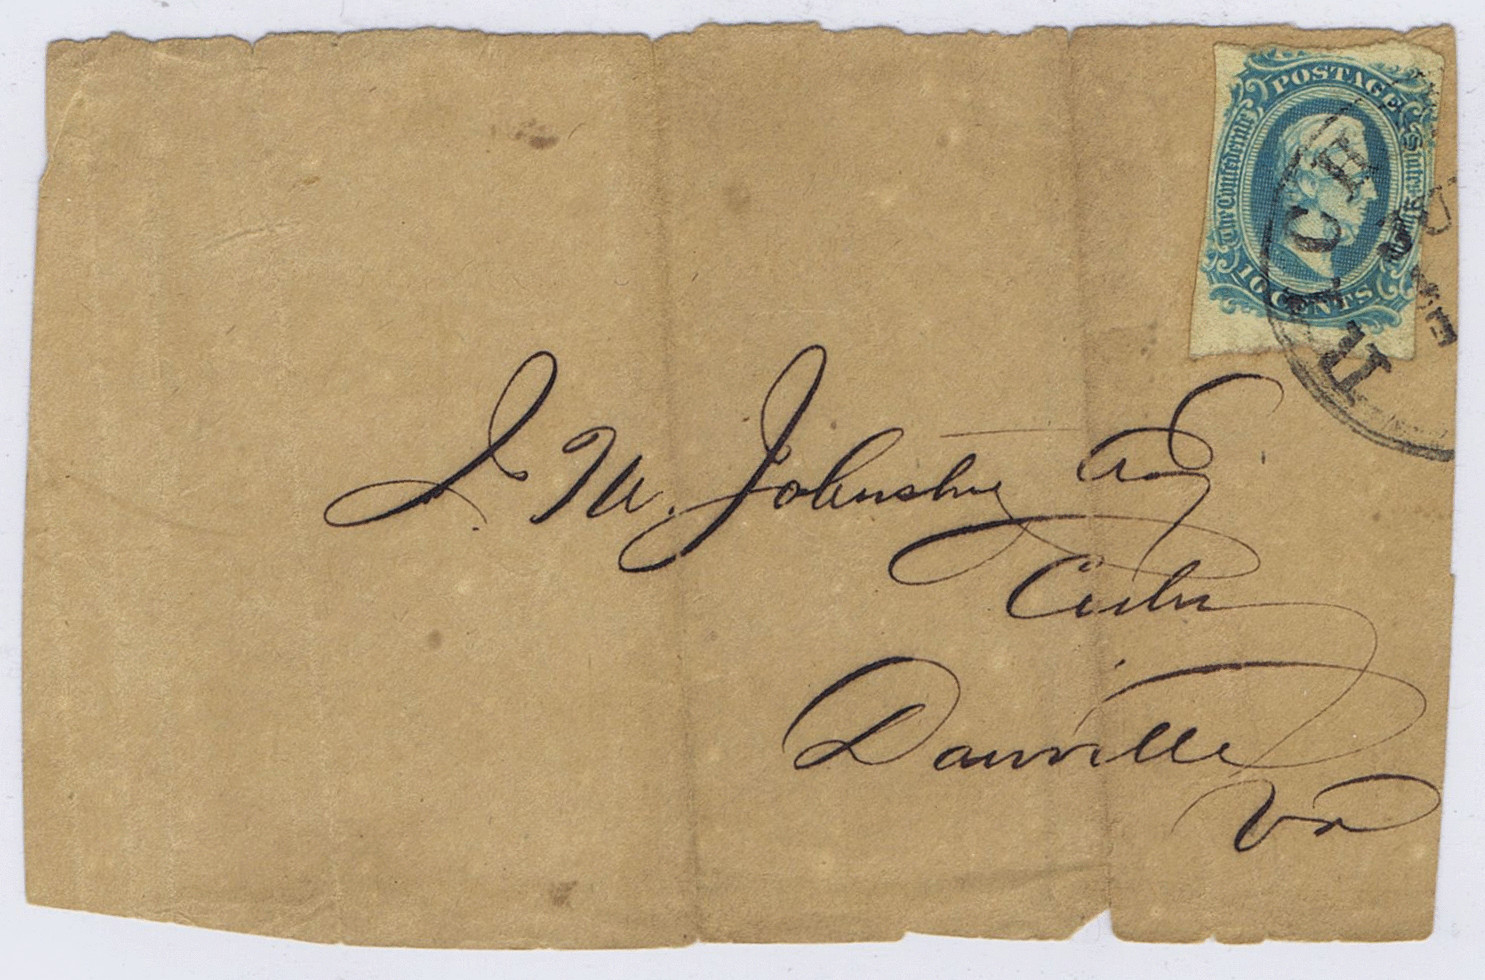 POSTAGE
The Confederate States of America
10 CENTS
RICH
J. M. Johnston Esq
Danville
Va